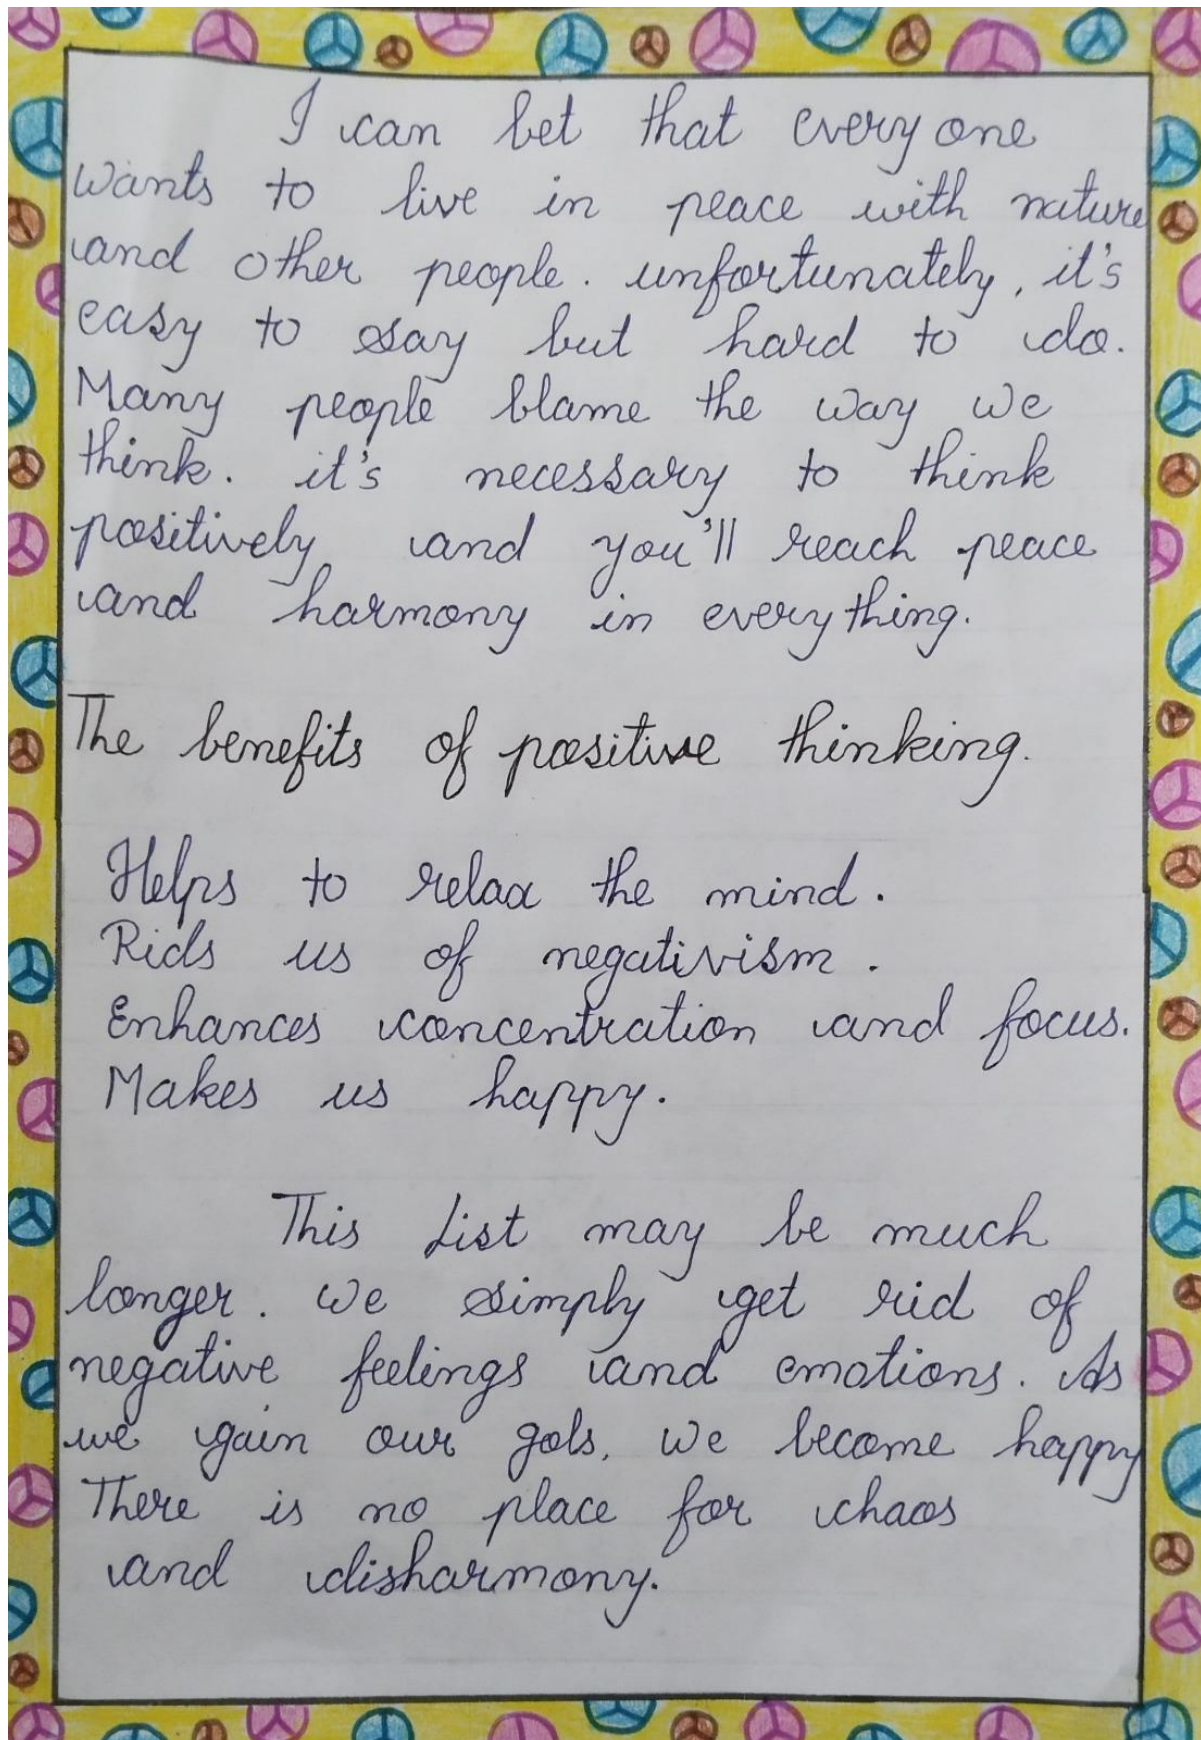 I can bet that every one
wants to live in peace with nature
and other people. unfortunately, it's
easy to say but hard to do.
Many people blame the way we
think. it's necessary to think
positively and you'll reach peace
and harmony in every thing.
The benefits of positive thinking.
Helps to relax the mind.
Rids us of negativism.
Enhances concentration and focus.
Makes us happy.
This List may be much
longer. We simply get rid of
negative feelings and emotions. As
we gain our gols, we become happy
There is no place for chaos
and disharmony.